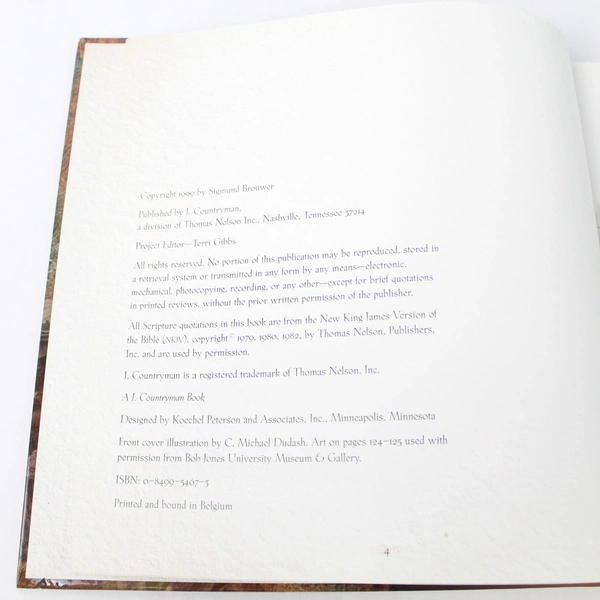 Copyright 1999 by Sigmund Brouwer
Published by J. Countryman,
a division of Thomas Nelson Inc., Nashville, Tennessee 37214
Project Editor—Terri Gibbs
All rights reserved. No portion of this publication may be reproduced, stored in
a retrieval system or transmitted in any form by any means—electronic,
mechanical, photocopying, recording, or any other—except for brief quotations
in printed reviews, without the prior written permission of the publisher.
All Scripture quotations in this book are from the New King James Version of
the Bible (NKJV), copyright © 1979, 1980, 1982, by Thomas Nelson, Publishers,
Inc. and are used by permission.
J. Countryman is a registered trademark of Thomas Nelson, Inc.
A J. Countryman Book
Designed by Koechel Peterson and Associates, Inc., Minneapolis, Minnesota
Front cover illustration by C. Michael Dudash. Art on pages 124–125 used with
permission from Bob Jones University Museum & Gallery.
ISBN: 0-8499-5467-5
Printed and bound in Belgium
4